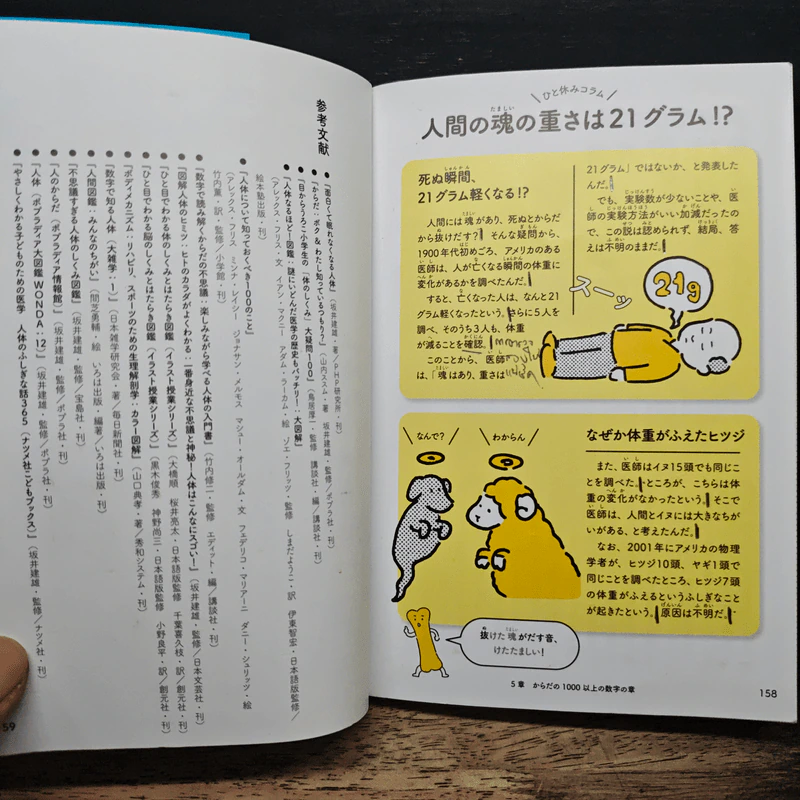 ひと休みコラム
人間の魂の重さは21グラム!?
死ぬ瞬間、
21グラム軽くなる!?
人間には魂があり、死ぬとからだ
から抜けだす? そんな疑問から、
1900年代初めごろ、アメリカのある
医師は、人が亡くなる瞬間の体重に
変化があるかを調べたんだ。
すると、亡くなった人は、なんと21
グラム軽くなったという。さらに5人を
調べ、そのうち3人も、体重
が減ることを確認。
このことから、医師
は、「魂はあり、重さは
21グラム」ではないか、と発表した
んだ。
でも、実験数が少ないことや、医
師の実験方法がいい加減だったの
で、この説は認められず、結局、答
えは不明のままだ。
スーッ
21g
なんで?
わからん
なぜか体重がふえたヒツジ
また、医師はイヌ15頭でも同じこ
とを調べた。ところが、こちらは体
重の変化がなかったという。そこで
医師は、人間とイヌには大きなちが
いがある、と考えたんだ。
なお、2001年にアメリカの物理
学者が、ヒツジ10頭、ヤギ1頭で
同じことを調べたところ、ヒツジ7頭
の体重がふえるというふしぎなこと
が起きたという。原因は不明だ。
抜けた魂がだす音、
けたたましい!
5章 からだの1000以上の数字の章
158
参考文献
●『面白くて眠れなくなる人体』(坂井建雄・著/PHP研究所・刊)
●『からだ:ボク&わたし知っているつもり?』(山内ススム・著 坂井建雄・監修/ポプラ社・刊)
●『目からうろこ小学生の「体のしくみ」大疑問100』(鳥居厚一・監修 講談社・編/講談社・刊)
●『人体なるほど!図鑑:謎にいどんだ医学の歴史もバッチリ!:大図解』
(アレックス・フリス・文 イアン・マクニー アダム・ラーカム・絵 ゾエ・フリッツ・監修 しまだようこ・訳 伊東智宏・日本語版監修/
絵本塾出版・刊)
●『人体について知っておくべき100のこと』
(アレックス・フリス ミンナ・レイシー ジョナサン・メルモス マシュー・オールダム・文 フェデリコ・マリアーニ ダニー・シュリッツ・絵
竹内薫・訳・監修/小学館・刊)
●『数字で読み解くからだの不思議:楽しみながら学べる人体の入門書』(竹内修二・監修 エディット・編/講談社・刊)
●『図解人体のヒミツ:ヒトのカラダがよくわかる。一番身近な不思議と神秘!人体はこんなにスゴい!』(坂井建雄・監修/日本文芸社・刊)
●『ひと目でわかる体のしくみとはたらき図鑑(イラスト授業シリーズ)』(大橋順 桜井亮太・日本語版監修 千葉喜久枝・訳/創元社・刊)
●『ひと目でわかる脳のしくみとはたらき図鑑(イラスト授業シリーズ)』(黒木俊秀 神野尚三・日本語版監修 小野良平・訳/創元社・刊)
●『ボディメカニズム:リハビリ、スポーツのための生理解剖学:カラー図解』(山口典孝・著/秀和システム・刊)
●『数字で知る人体(大雑学・1)』(日本雑学研究会・著/毎日新聞社・刊)
●『人間図鑑:みんなのちがい』(間芝勇輔・絵 いろは出版・編著/いろは出版・刊)
●『不思議すぎる人体のしくみ図鑑』(坂井建雄・監修/宝島社・刊)
●『人のからだ(ポプラディア情報館)』(坂井建雄・監修/ポプラ社・刊)
●『人体(ポプラディア大図鑑WONDA:12)』(坂井建雄・監修/ポプラ社・刊)
●『やさしくわかる子どものための医学 人体のふしぎな話365(ナツメ社こどもブックス)』(坂井建雄・監修/ナツメ社・刊)
59